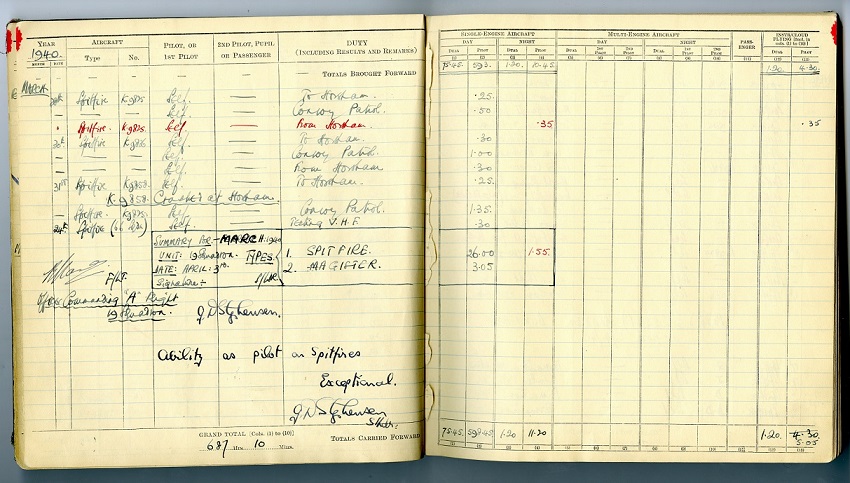 YEAR AIRCRAFT PILOT, OR 1ST PILOT 2ND PILOT, PUPIL OR PASSENGER DUTY (INCLUDING RESULTS AND REMARKS)
1940.
MONTH DATE Type No.
— — — — TOTALS BROUGHT FORWARD
MARCH
Spitfire K.9825. Self. — To Horsham.
— — Self. — Convoy Patrol.
" Spitfire. K.9825. Self. — From Horsham.
Spitfire K.9825 Self. — To Horsham.
— — Self. — Convoy Patrol.
— — Self. — From Horsham
31st Spitfire K.9858. Self. — To Horsham.
K.9858. Crashed at Horsham.
Spitfire. K.9825. Self — Convoy Patrol.
24th Spitfire Self. — Testing V.H.F.
SUMMARY FOR:- MARCH 1940
UNIT: 19 Squadron. TYPES 1. SPITFIRE.
DATE: APRIL: 3rd. 2. MAGISTER.
Signature:-
F/Lt.
Officer Commanding "A" Flight
19 Squadron. G D Stephenson.
Ability as pilot on Spitfires
Exceptional.
G D Stephenson
S/Ldr.
GRAND TOTAL [Cols. (1) to (10)]
687 Hrs. 10 Mins.
TOTALS CARRIED FORWARD
SINGLE-ENGINE AIRCRAFT MULTI-ENGINE AIRCRAFT PASS-ENGER INSTR/CLOUD FLYING [Incl. in cols. (1) to (10)]
DAY NIGHT DAY NIGHT
DUAL PILOT DUAL PILOT DUAL 1ST PILOT 2ND PILOT DUAL 1ST PILOT 2ND PILOT DUAL PILOT
(1) (2) (3) (4) (5) (6) (7) (8) (9) (10) (11) (12) (13)
75.45. 593. 1.20 10.45. 1.20 4.30.
.25.
.50.
.35 .35
.30
1.00
.30
.25.
1.35.
.30
26.00 1.55.
3.05
75.45. 598.45 1.20 11.20 1.20. 4.30
5.05
(1) (2) (3) (4) (5) (6) (7) (8) (9) (10) (11) (12) (13)